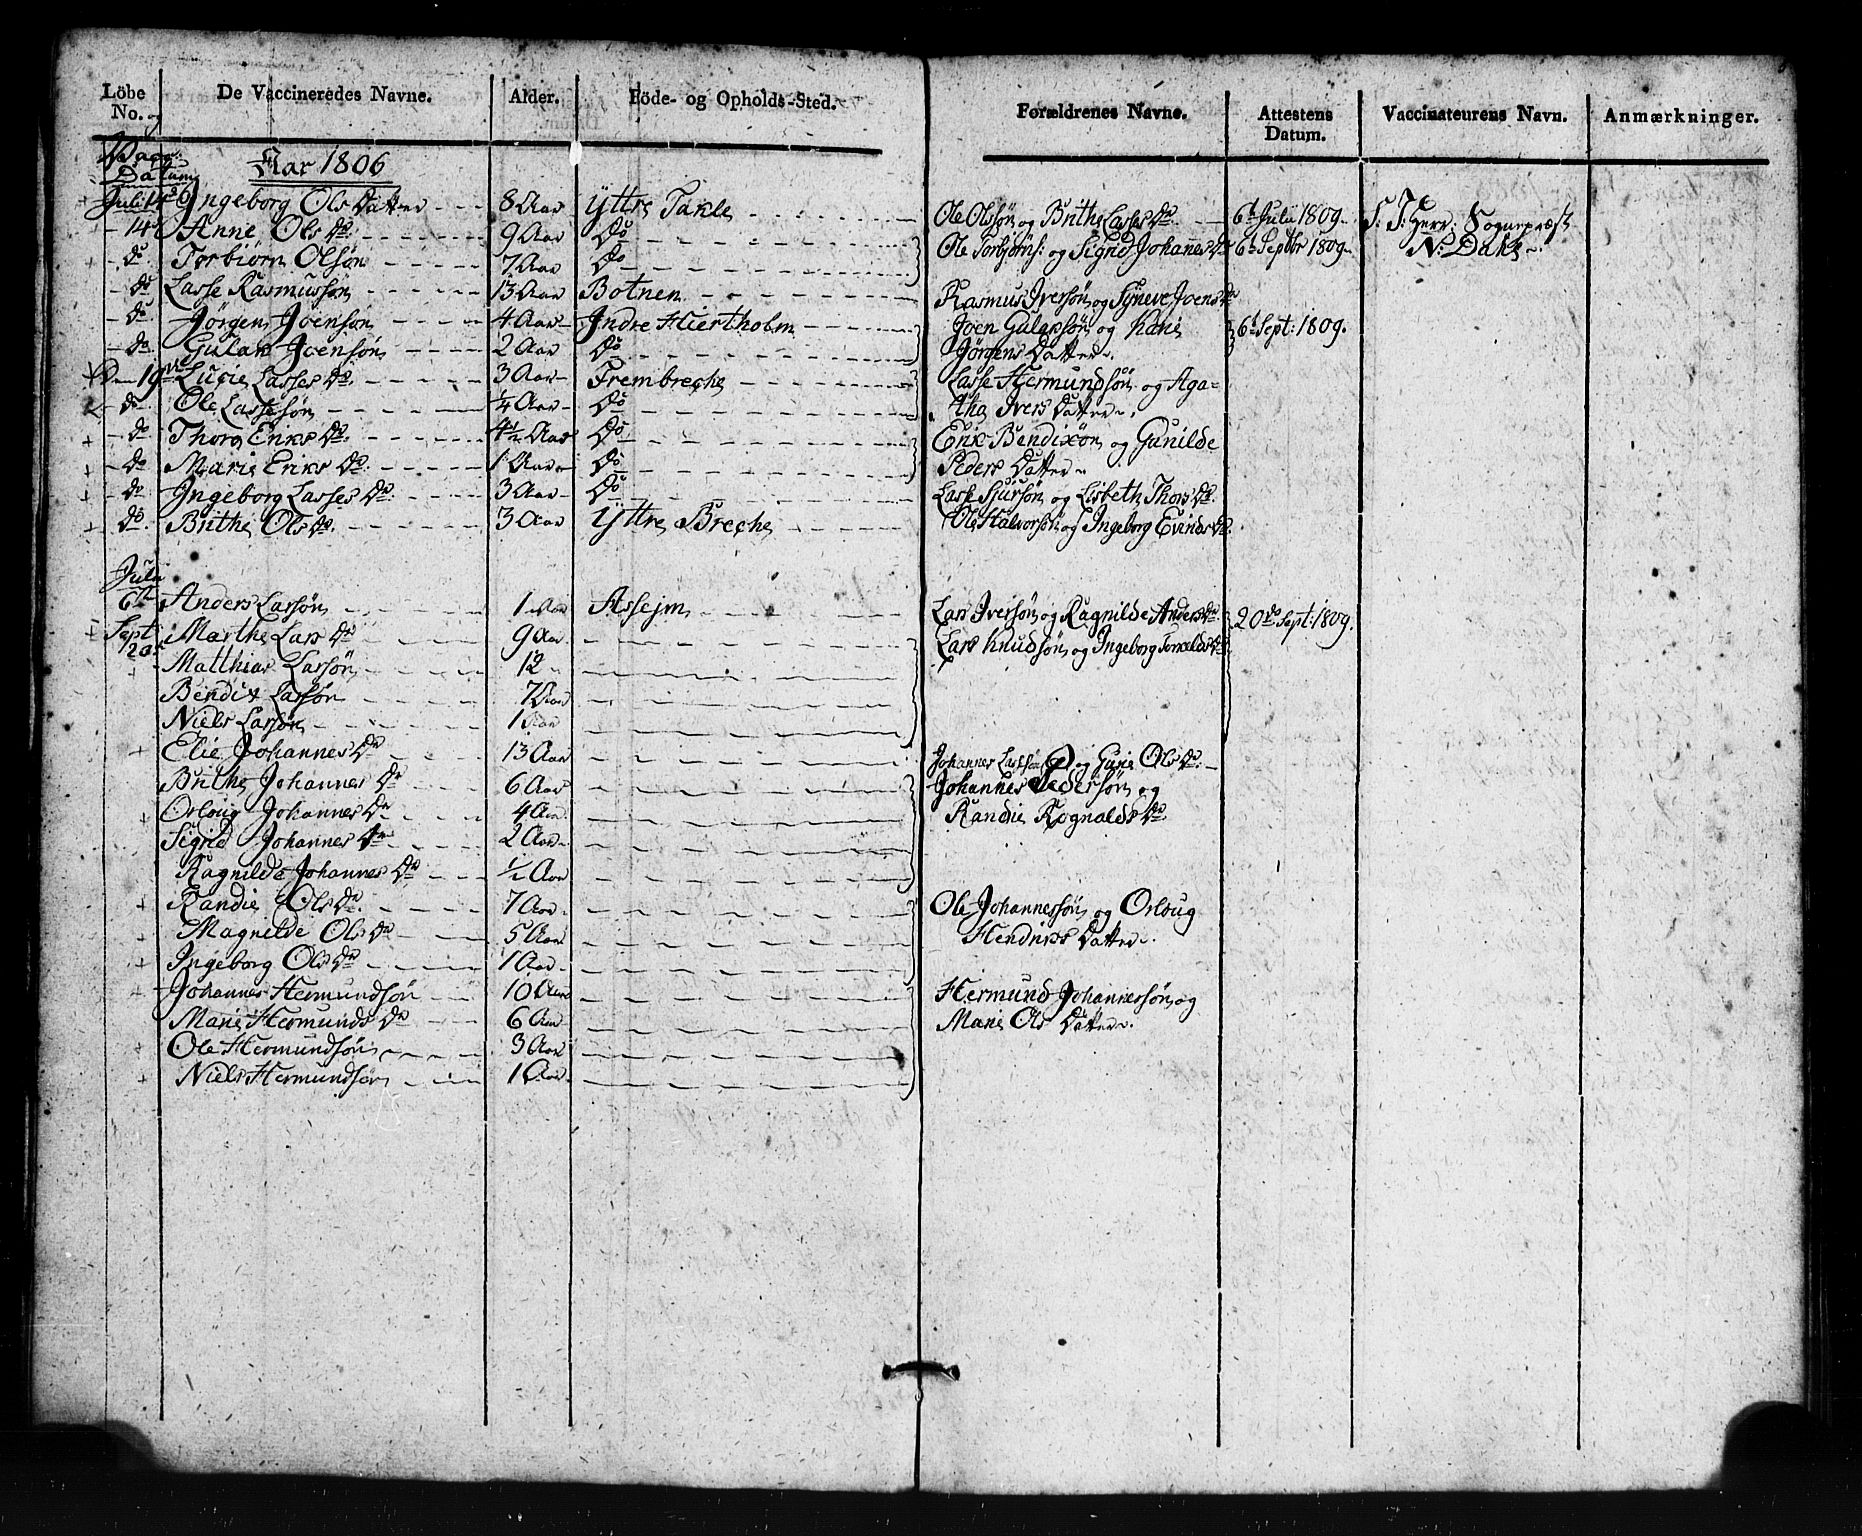 Löbe No. og Vacc: Datum | De Vaccineredes Navne. | Alder. | Föde- og Opholds-Sted. | Forældrenes Navne. | Attestens Datum. | Vaccinateurens Navn. | Anmærkninger.
Aar 1806
Juli 14de Ingeborg Ols Datter 8 Aar Yttre Takle Ole Olssön og Brithe Lasses Dr 6te Julii 1809 S. T. Herr: Sognepræst
14 Anne Ols Dr 9 Aar Do Ole Torbjörns: og Sigrid Johanes Dr 6te Septbr 1809 N: Dahl
do. Torbiörn Olsön 7 Aar Do
do Lasse Rasmussön 13 Aar Botnen Rasmus Iversön og Syneve Joens Dr
do. Jörgen Joensön 4 Aar Indre Hiertholm Joen Gularsön og Kari 6te Sept: 1809.
do. Gular Joensön 2 Aar Do Jörgens Datter
Den 19de Lucie Lasses Dr 3 Aar Frembreche Lasse Hermundsön og Aga-
do. Ole Lassesön 1/4 Aar Do tha Ivers Datter
do Thora Eriks Dr 4 1/2 Aar Do Erik Bendixön og Gunilde
do Marie Eriks Dr 1 Aar Do Peders Datter
do Ingeborg Lasses Dr 3 Aar Do Lasse Sjursön og Lisbeth Thors Dr
do. Brithe Ols Dr 3 Aar Yttre Breche Ole Halvorsön og Ingeborg Evinds Dr
Julii
6te Anders Larsön 1 Aar Assejm Lars Iversön og Ragnilde Anders Dr 20de Sept: 1809.
Sept Marthe Lars Dr 9 Aar Lars Knudsön og Ingeborg Torkelds Dr
20 Matthias Larsön 12
Bendix Larsön 7 Aar
Niels Larsön 1 Aar
Elie Johannes Dr 13 Aar Johannes Larssön og Guri Ols Dr
Brithe Johannes Dr 6 Aar Johannes Pedersön og
Orloug Johannes Dr 4 Aar Randie Rognalds Dr
Sigrid Johannes Dr 2 Aar
Ragnilde Johannes Dr 1/2 Aar
Randie Ols Dr. 7 Aar Ole Johannessön og Orloug
Magnilde Ols Dr 5 Aar Hendriks Datter
Ingeborg Ols Dr 1 Aar
Johannes Hermundsön 10 Aar Hermund Johannessön og
Marie Hermunds Dr 6 Aar Marie Ols Datter
Ole Hermundsön 3 Aar
Niels Hermundsön 1 Aar